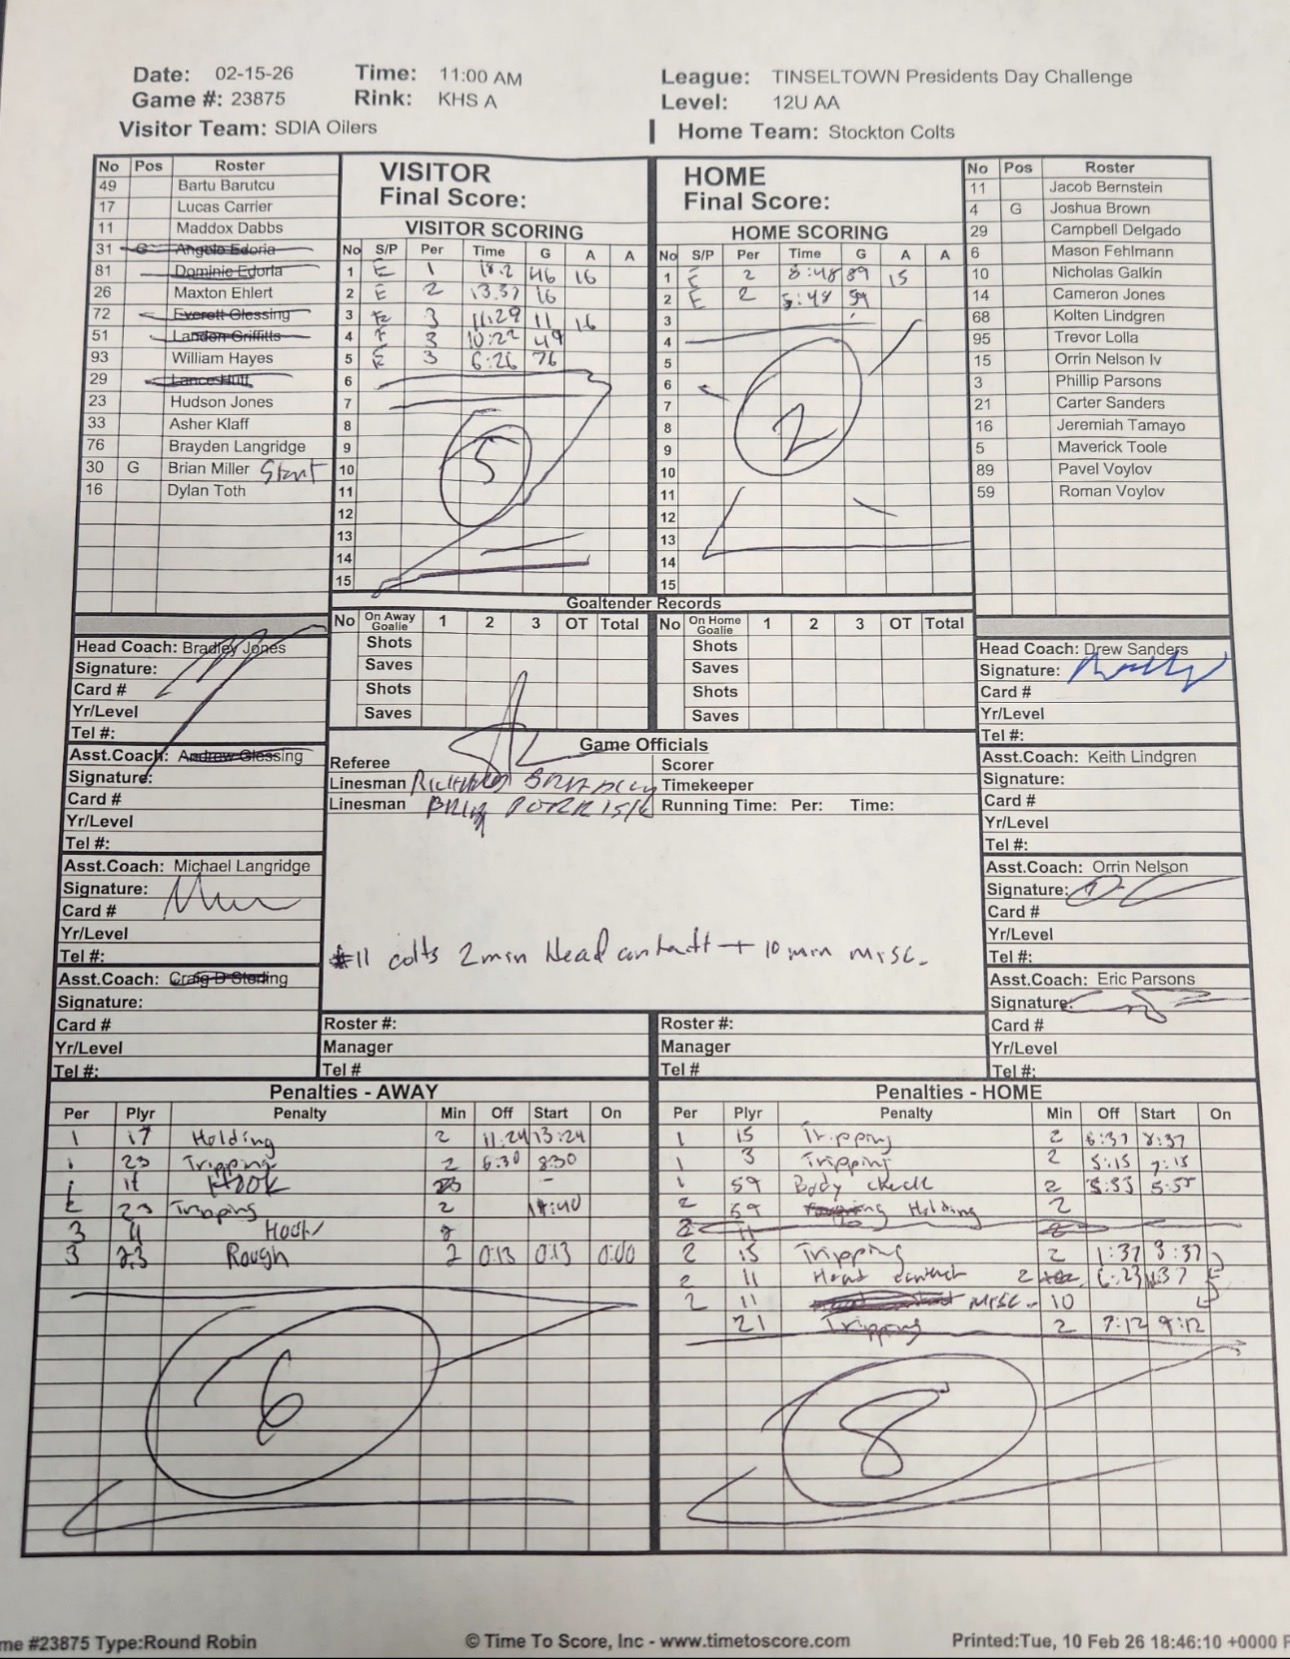 Date: 02-15-26 Time: 11:00 AM League: TINSELTOWN Presidents Day Challenge
Game #: 23875 Rink: KHS A Level: 12U AA
Visitor Team: SDIA Oilers Home Team: Stockton Colts
No Pos Roster
49 Bartu Barutcu
17 Lucas Carrier
11 Maddox Dabbs
31 G Angelo Edoria
81 Dominic Edoria
26 Maxton Ehlert
72 Everett Glessing
51 Landon Griffitts
93 William Hayes
29 Lance Hutt
23 Hudson Jones
33 Asher Klaff
76 Brayden Langridge
30 G Brian Miller Start
16 Dylan Toth
VISITOR
Final Score:
VISITOR SCORING
No S/P Per Time G A A
1 E 1 18.2 46 16
2 E 2 13.37 16
3 3 11:29 11 16
4 3 10:22 49
5 E 3 6:26 76
6
7
8
9
10
11
12
13
14
15
5
HOME
Final Score:
HOME SCORING
No S/P Per Time G A A
1 E 2 8:48 89 15
2 E 2 5:48 59
3
4
5
6
7
8
9
10
11
12
13
14
15
2
No Pos Roster
11 Jacob Bernstein
4 G Joshua Brown
29 Campbell Delgado
6 Mason Fehlmann
10 Nicholas Galkin
14 Cameron Jones
68 Kolten Lindgren
95 Trevor Lolla
15 Orrin Nelson Iv
3 Phillip Parsons
21 Carter Sanders
16 Jeremiah Tamayo
5 Maverick Toole
89 Pavel Voylov
59 Roman Voylov
Goaltender Records
No On Away Goalie 1 2 3 OT Total No On Home Goalie 1 2 3 OT Total
Shots Shots
Saves Saves
Shots Shots
Saves Saves
Head Coach: Bradley Jones
Signature:
Card #
Yr/Level
Tel #:
Asst.Coach: Andrew Glessing
Signature:
Card #
Yr/Level
Tel #:
Asst.Coach: Michael Langridge
Signature:
Card #
Yr/Level
Tel #:
Asst.Coach: Craig D Sterling
Signature:
Card #
Yr/Level
Tel #:
Game Officials
Referee Scorer
Linesman Timekeeper
Linesman Running Time: Per: Time:
#11 colts 2min Head contact + 10 min misc.
Roster #: Roster #:
Manager Manager
Tel # Tel #
Head Coach: Drew Sanders
Signature:
Card #
Yr/Level
Tel #:
Asst.Coach: Keith Lindgren
Signature:
Card #
Yr/Level
Tel #:
Asst.Coach: Orrin Nelson
Signature:
Card #
Yr/Level
Tel #:
Asst.Coach: Eric Parsons
Signature:
Card #
Yr/Level
Tel #:
Penalties - AWAY
Per Plyr Penalty Min Off Start On
1 17 Holding 2 11:24 13:24
1 23 Tripping 2 6:30 8:30
1 11 Hook
23 Tripping 2
3 11 Hook 2
3 23 Rough 2 0:13 0:13 0:00
6
Penalties - HOME
Per Plyr Penalty Min Off Start On
1 15 Tripping 2 6:37 8:37
1 3 Tripping 2 5:15 7:15
1 59 Body check 2 3:55 5:55
2 59 Holding 2
2 11
2 15 Tripping 2 1:37 3:37
2 11 Head contact 2
2 11 Misc. 10
21 Tripping 2 7:12 9:12
8
me #23875 Type:Round Robin © Time To Score, Inc - www.timetoscore.com Printed:Tue, 10 Feb 26 18:46:10 +0000